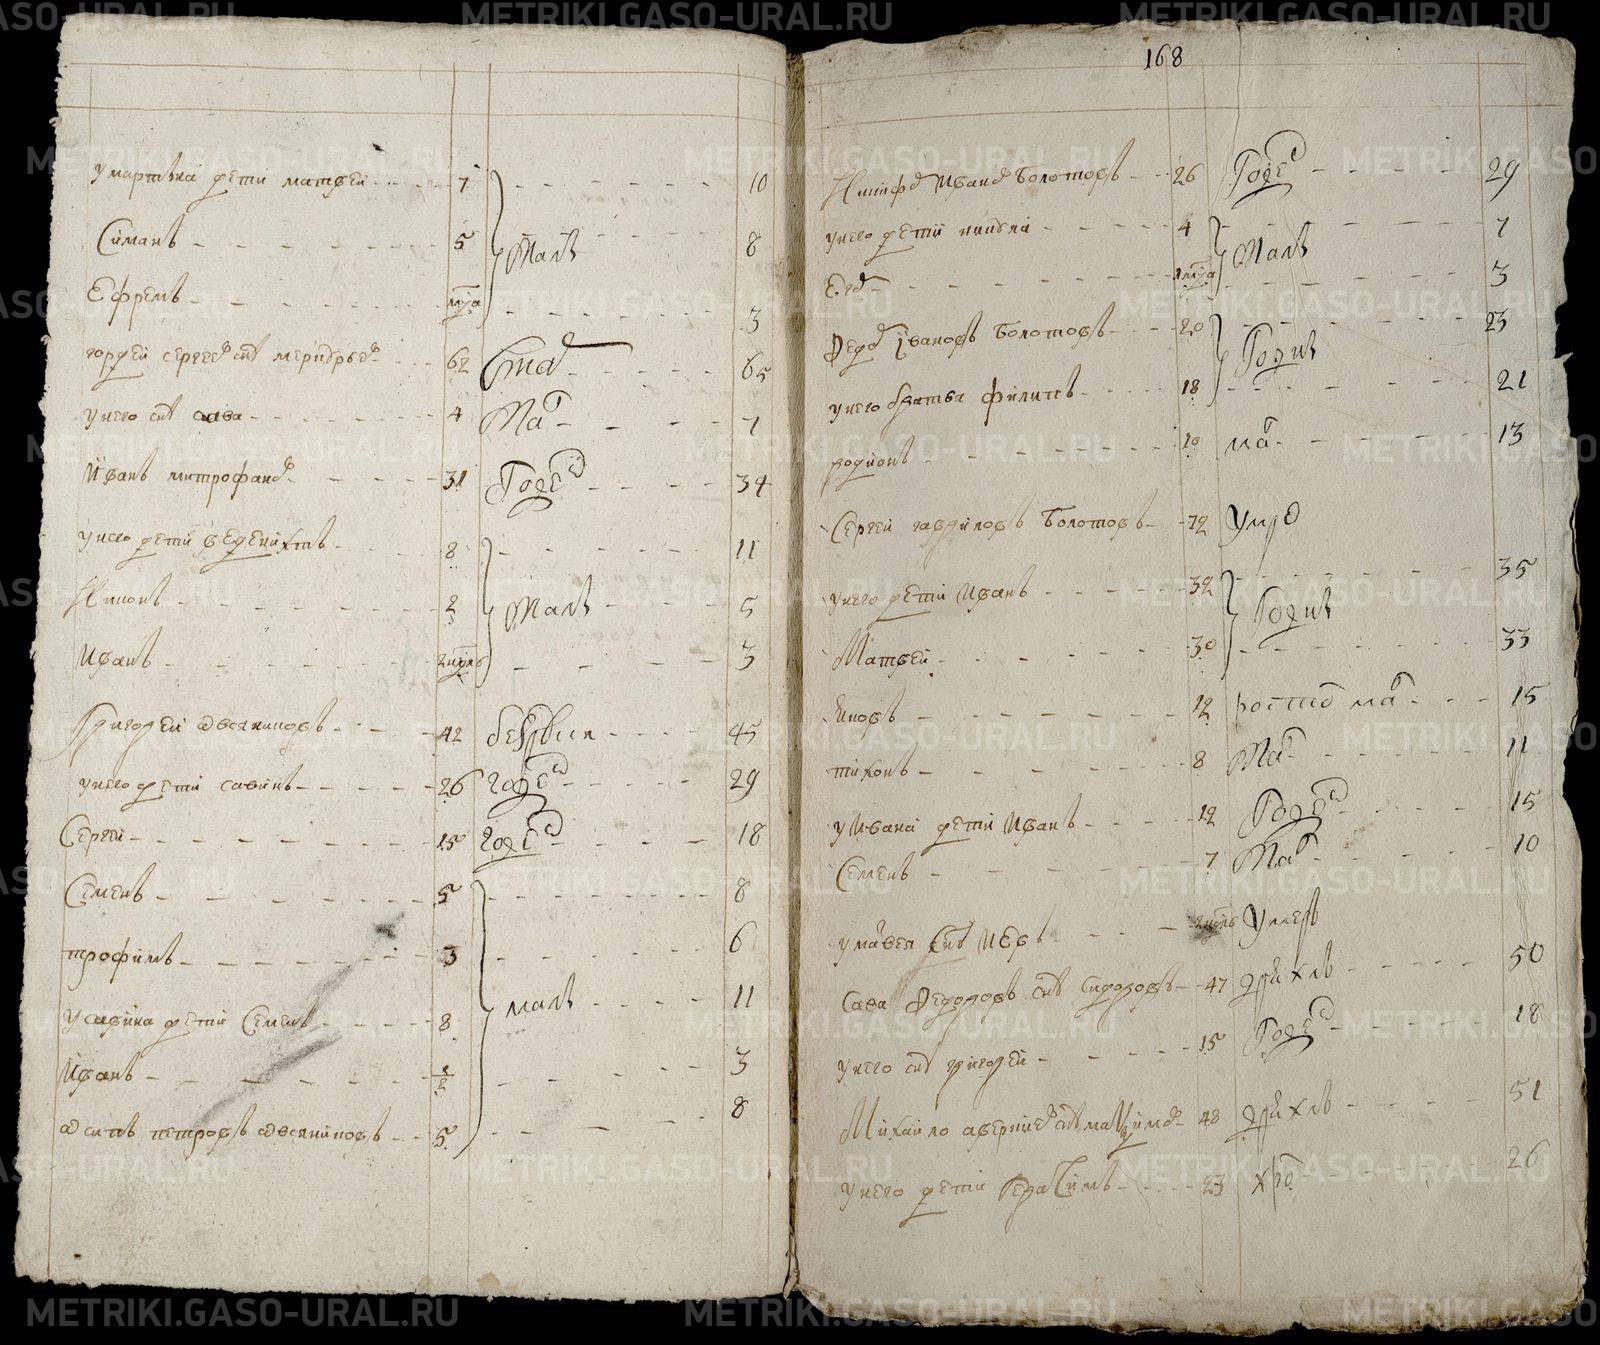 у мартына дети матвей 7 10
Симанъ 5 малъ 8
Ефремъ 3
гордей 62 Ста 65
у него снъ сава 4 Ма 7
Иванъ митрофано 31 Годе 34
у него дети веденихтъ 8 11
Никонъ 2 малъ 5
Иванъ 3
Григорей овсяниковъ 42 45
у него дети савинъ 26 годе 29
Сергей 15 годе 18
Семенъ 5 8
трофимъ 3 6
у савина дети Семенъ 8 малъ 11
Иванъ 1/2 3
осипъ петровъ овсяниковъ 5 8
168
Никифо Ивано Болотовъ 26 Годе 29
у него дети 4 малъ 7
Его 3
Федо Ивановъ Болотовъ 20 Годнъ 23
у него братья филипъ 18 21
родионъ 10 ма 13
Сергей гавриловъ Болотовъ 72 Умре
у него дети Иванъ 32 Годнъ 35
Матвей 30 33
Яковъ 12 ма 15
тихонъ 8 Ма 11
у Ивана дети Иванъ 12 Годе 15
Семенъ 7 Ма 10
у матвея снъ Умеръ
Сава Федоровъ снъ Сидоровъ 47 дряхлъ 50
у него снъ григорей 15 Годе 18
Михайло снъ 48 дряхлъ 51
у него дети Герасимъ 23 хро 26
METRIKI.GASO-URAL.RU